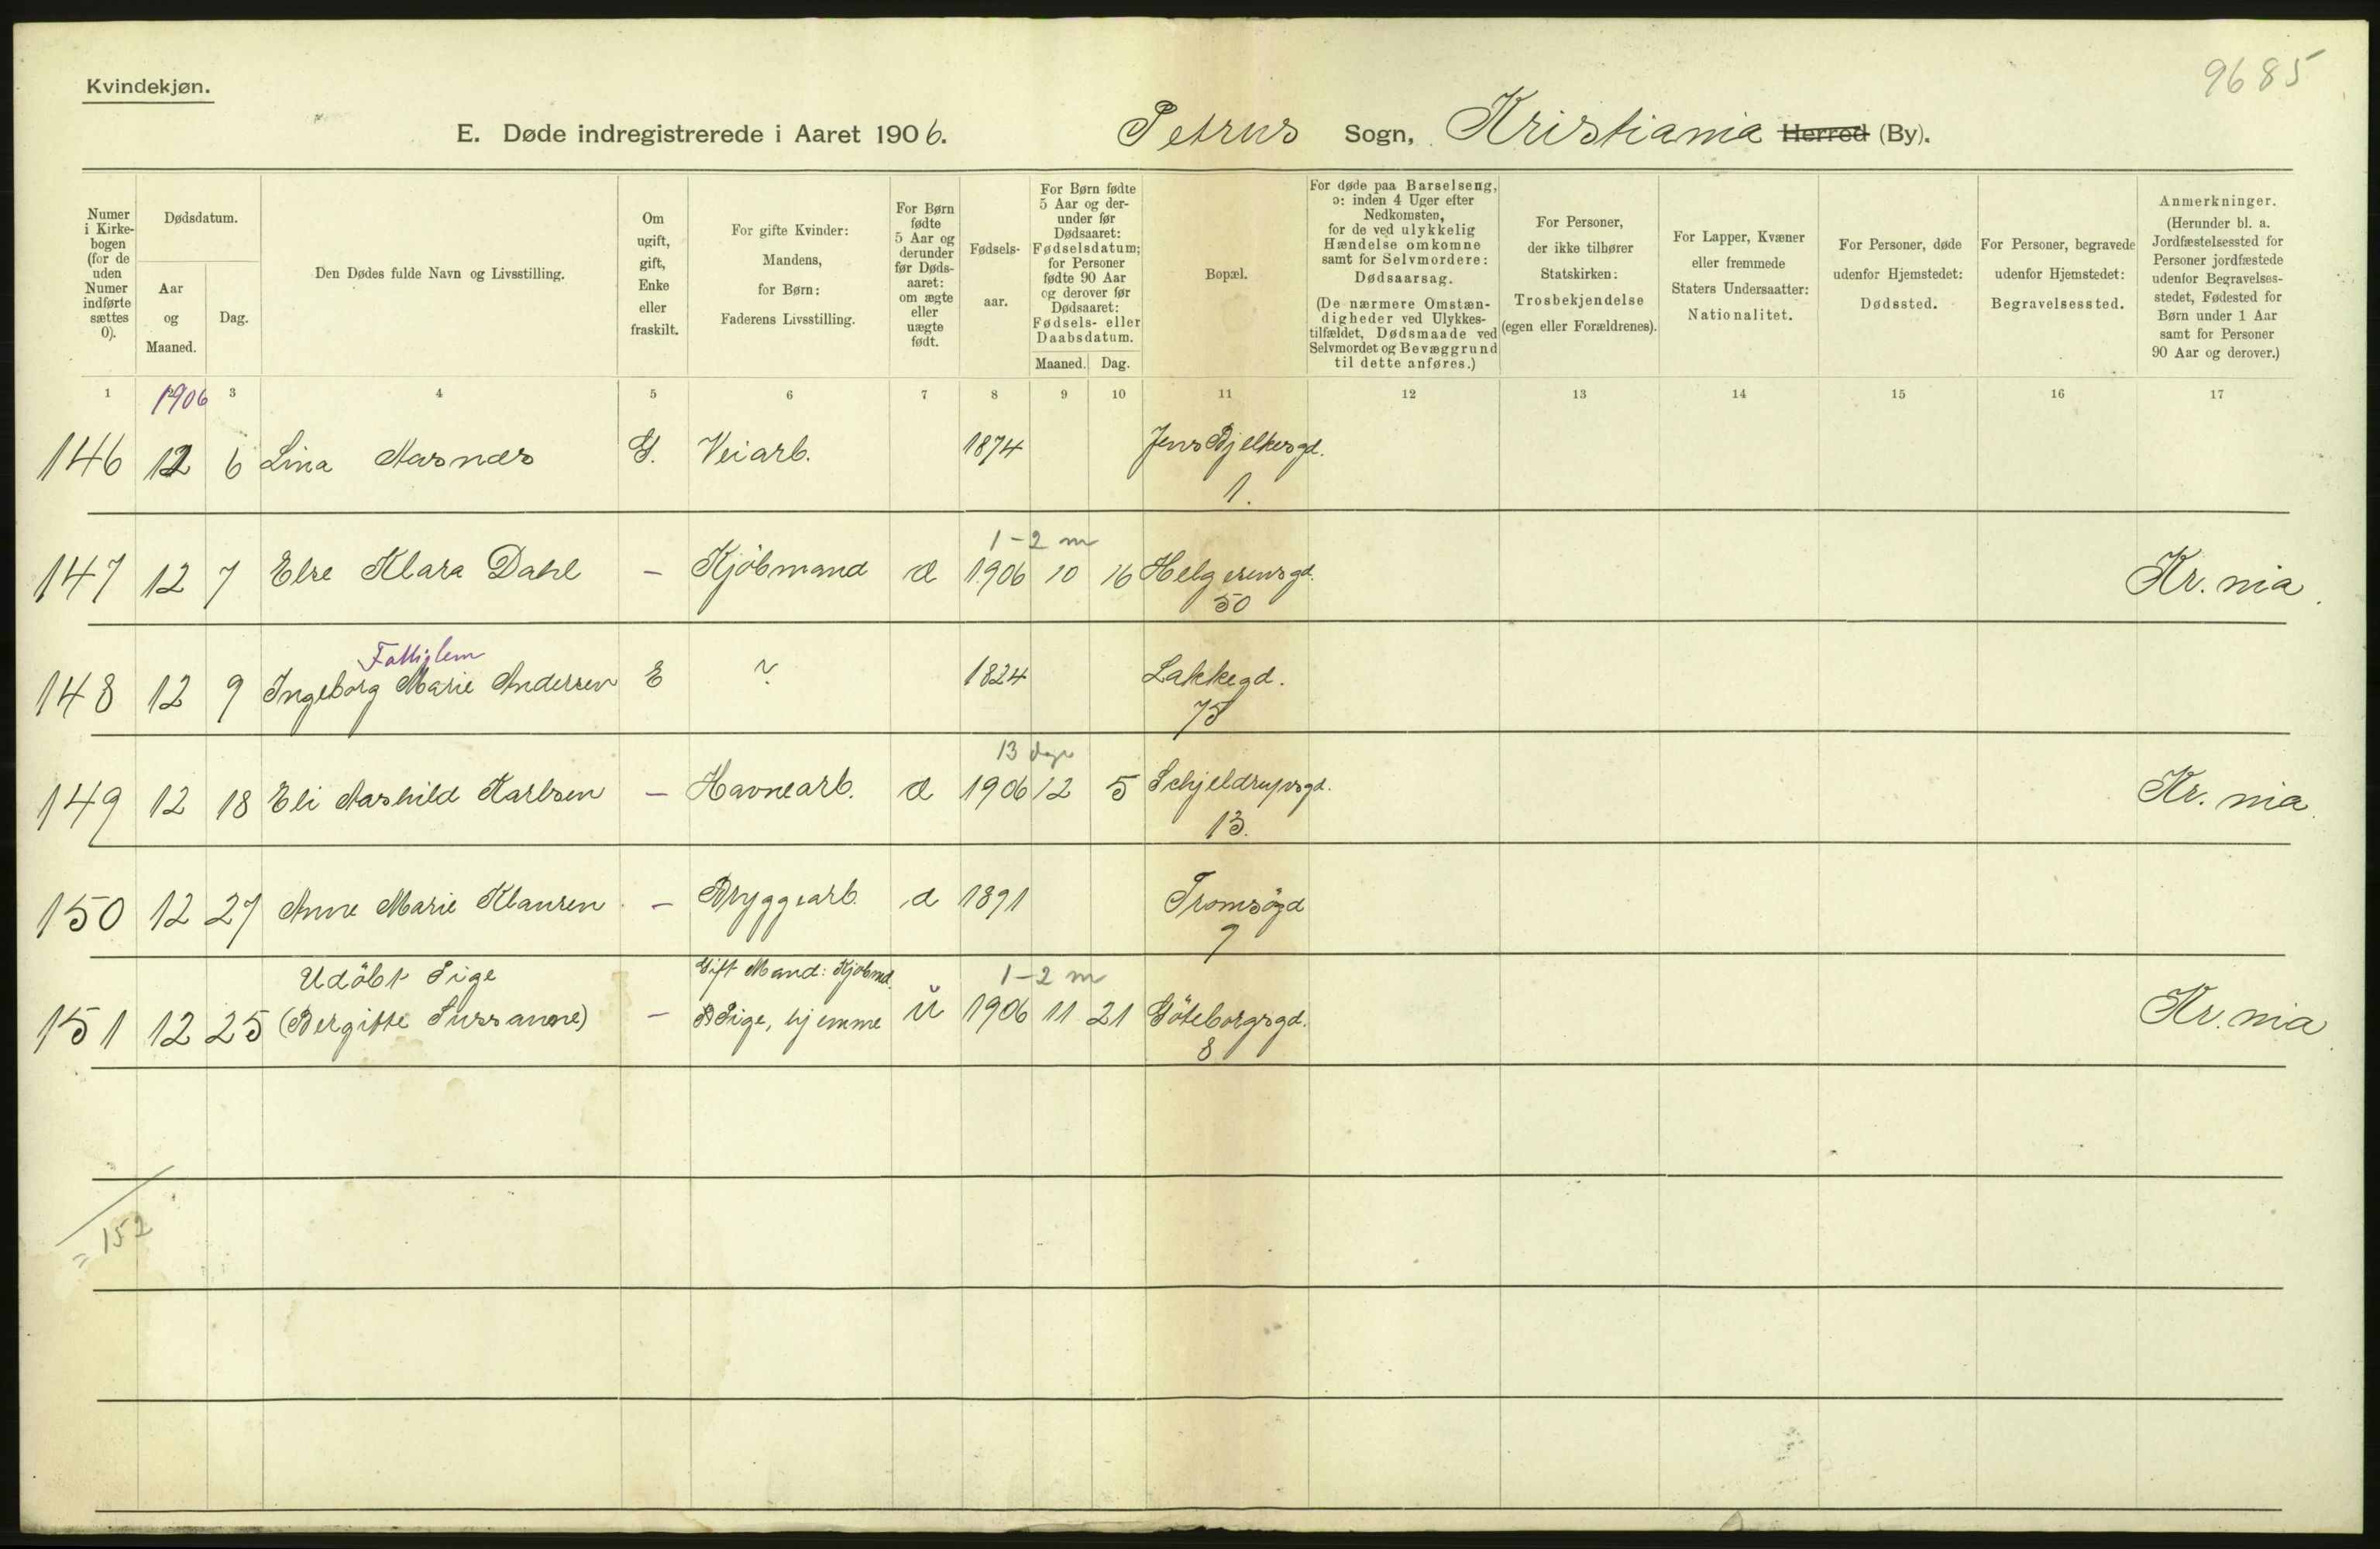 9685
Kvindekjøn.
E. Døde indregistrerede i Aaret 1906. Petrus Sogn, Kristiania Herred (By).
Numer i Kirkebogen (for de uden Numer indførte sættes 0).
Dødsdatum.
Aar og Maaned.
Dag.
Den Dødes fulde Navn og Livsstilling.
Om ugift, gift, Enke eller fraskilt.
For gifte Kvinder: Mandens, for Børn: Faderens Livsstilling.
For Børn fødte 5 Aar og derunder før Dødsaaret: om ægte eller uægte født.
Fødselsaar.
For Børn fødte 5 Aar og derunder før Dødsaaret: Fødselsdatum; for Personer fødte 90 Aar og derover før Dødsaaret: Fødsels- eller Daabsdatum.
Maaned. Dag.
Bopæl.
For døde paa Barselseng, ɔ: inden 4 Uger efter Nedkomsten, for de ved ulykkelig Hændelse omkomne samt for Selvmordere: Dødsaarsag.
(De nærmere Omstændigheder ved Ulykkestilfældet, Dødsmaade ved Selvmordet og Bevæggrund til dette anføres.)
For Personer, der ikke tilhører Statskirken: Trosbekjendelse (egen eller Forældrenes).
For Lapper, Kvæner eller fremmede Staters Undersaatter: Nationalitet.
For Personer, døde udenfor Hjemstedet: Dødssted.
For Personer, begravede udenfor Hjemstedet: Begravelsessted.
Anmerkninger.
(Herunder bl. a. Jordfæstelsessted for Personer jordfæstede udenfor Begravelsesstedet, Fødested for Børn under 1 Aar samt for Personer 90 Aar og derover.)
1 2 3 4 5 6 7 8 9 10 11 12 13 14 15 16 17
1906
146 12 6 Lina Aasnæs G. Veiarb. 1874 Jens Bjelkesgd.
1.
1-2 m
147 12 7 Else Klara Dahl — Kjöbmand d 1906 10 16 Helgesensgd.
50
Kr.nia.
Fattiglem
148 12 9 Ingeborg Marie Andersen E ? 1824 Lakkegd.
75
13 dage
149 12 18 Eli Aashild Karlsen — Havnearb. d 1906 12 5 Schjeldrupsgd.
13.
Kr.nia.
150 12 27 Anne Marie Klausen — Bryggearb. d 1891 Tromsögd
9
Udöbt Pige Gift Mand: Kjöbmd. 1-2 m
151 12 25 (Bergitte Sussanne) — Pige, hjemme u 1906 11 21 Göteborgsgd.
8
Kr.nia.
= 152